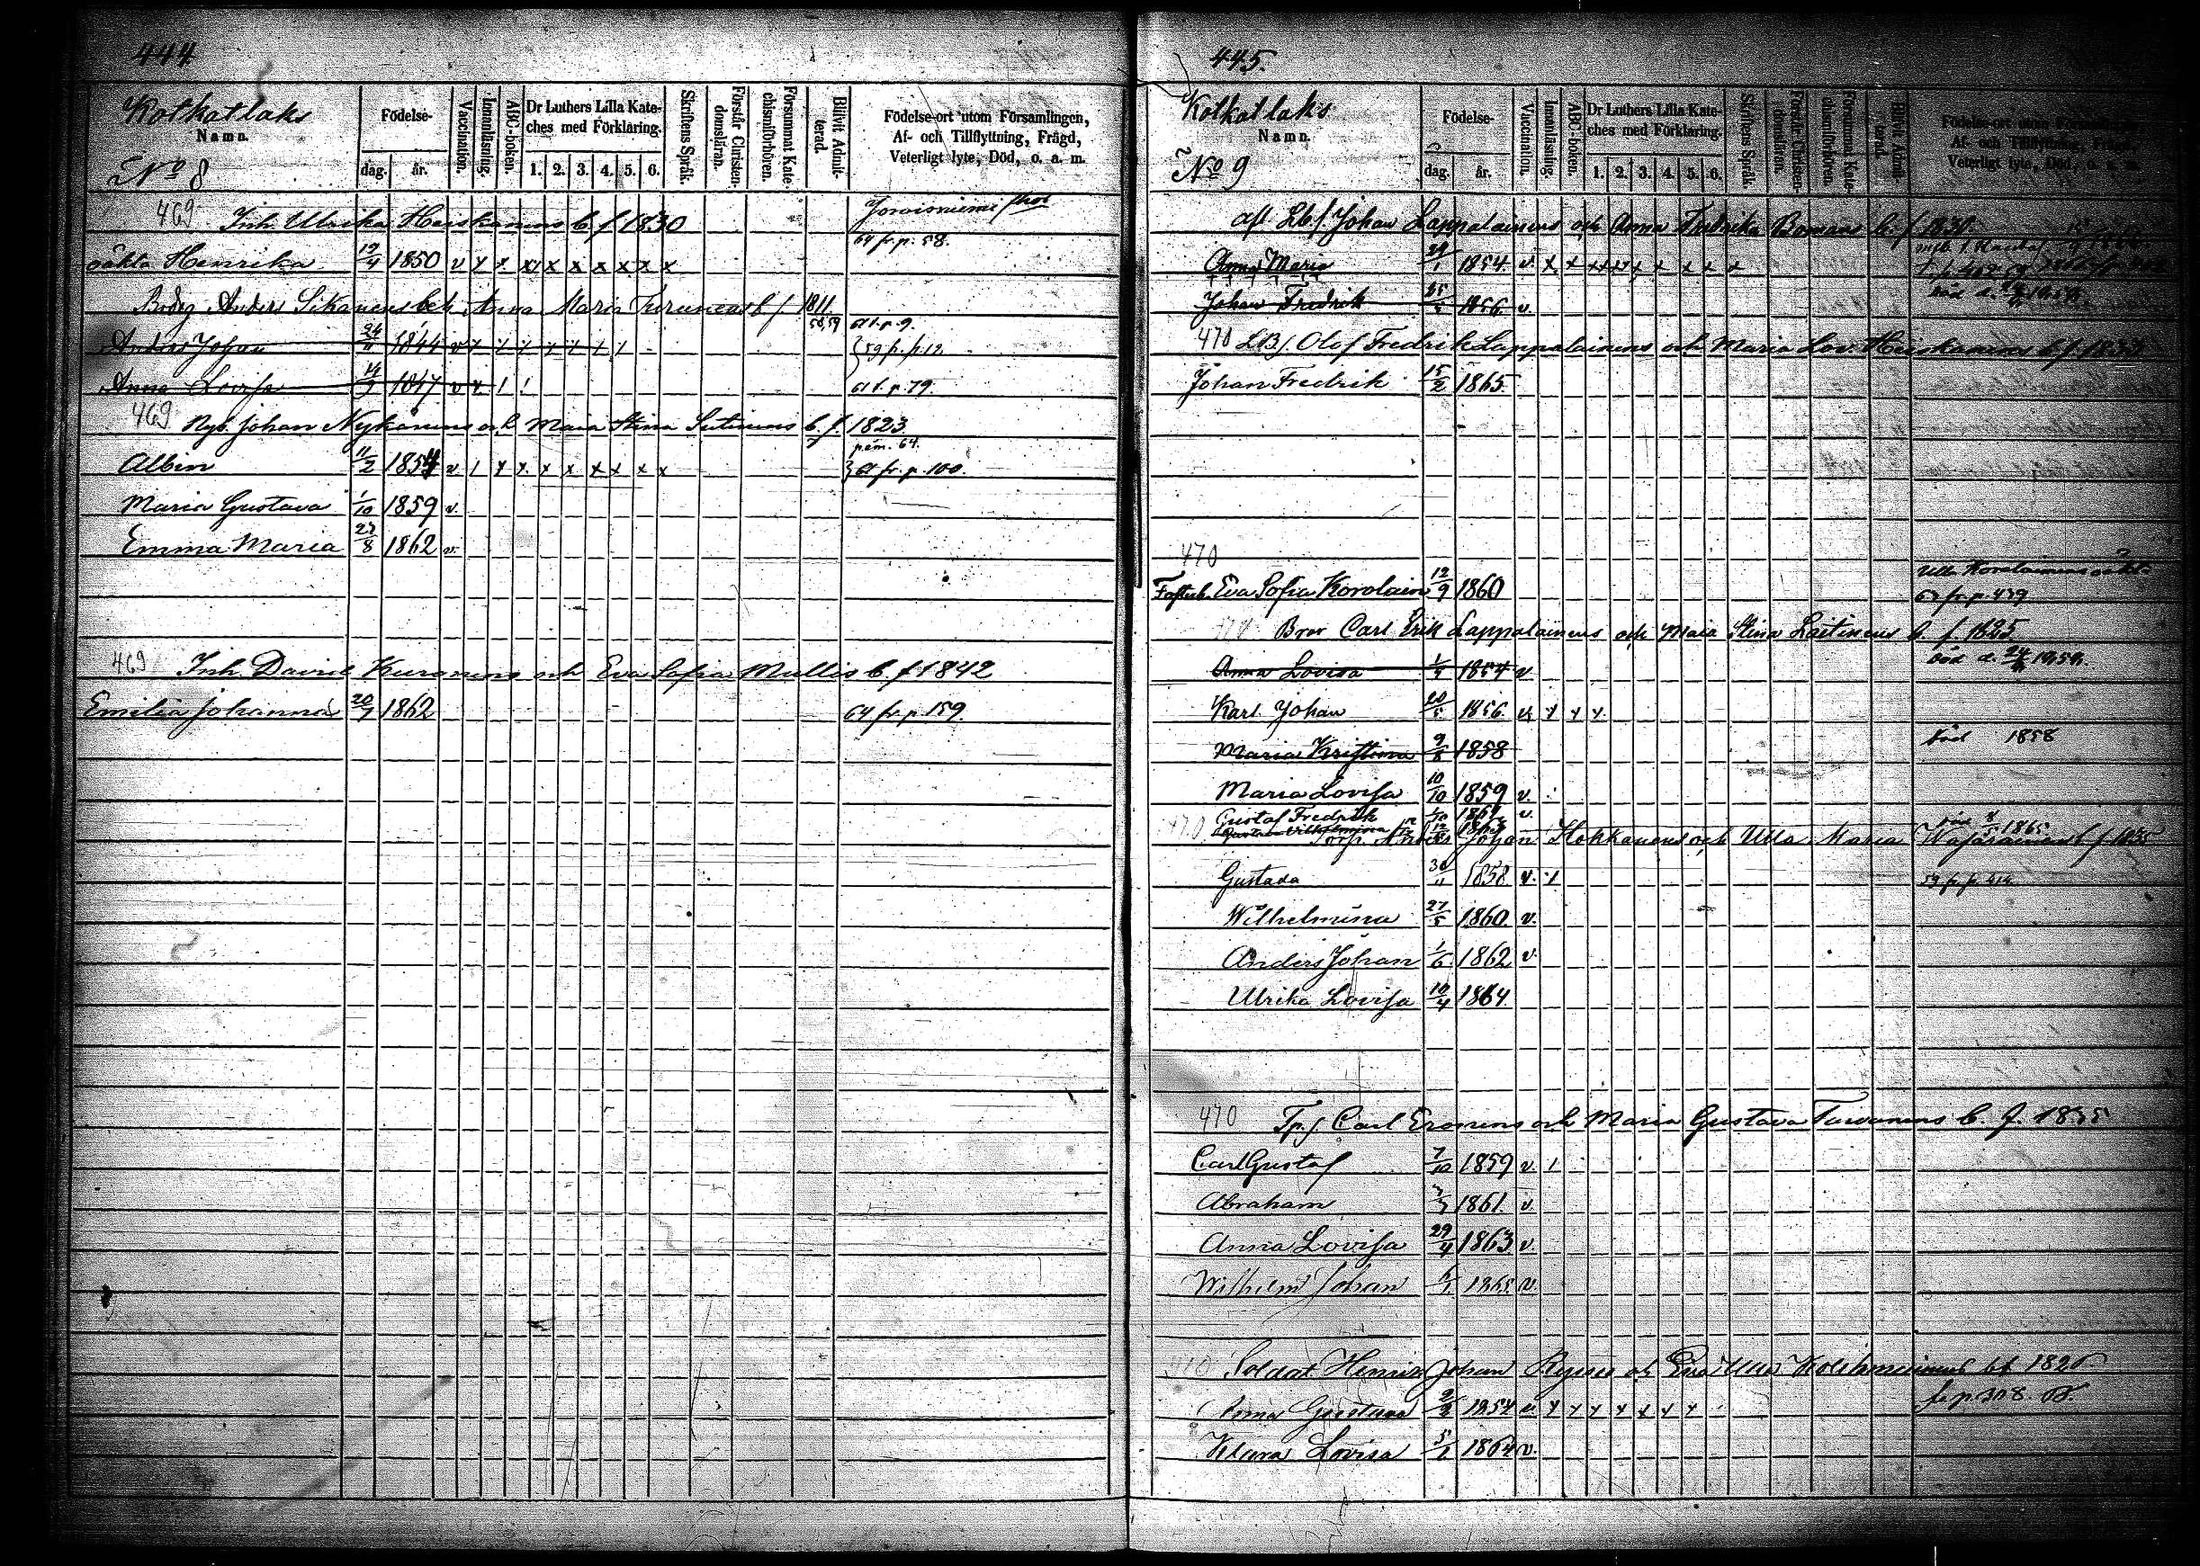 444
Kotkatlaks
Namn.
No 8
Födelse-
dag. år.
Vaccination.
Innanläsning.
ABC-boken.
Dr Luthers Lilla Kate-
ches med Förklaring.
1. 2. 3. 4. 5. 6.
Skriftens Språk.
Förstår Christen-
domsläran.
Försummat Kate-
chismiförhören.
Blivit Admit-
terad.
Födelse-ort utom Församlingen,
Af- och Tillflyttning, Frägd,
Veterligt lyte, Död, o. a. m.
469 Inh. Ulrika Heiskanens b. f. 1830
64 fr. p. 58.
oäkta Henrika 19/4 1850 v x x x x x x x x x
Anders Sikanens och Anna Maria Turunens b f 1811
58,59 61 t. p. 9.
Anders Johan 24/11 1844 v
59 fr. p. 12.
Anna Lovisa 1847 v
61 t. p. 79.
469 Nyb. Johan Nykänens och Maria Stina Sutinens b. f. 1823
p. äm. 64.
Albin 11/2 1854 v / x x x x x x x
61 fr. p. 100.
Maria Gustava 1/10 1859 v.
Emma Maria 27/8 1862 v.
469 Inh. David Kuronens och Eva Sofia Mullis b. f. 1842
Emilia Johanna 20/7 1862
64 fr. p. 159.
445.
Kotkatlaks
Namn.
No 9
Födelse-
dag. år.
Vaccination.
Innanläsning.
ABC-boken.
Dr Luthers Lilla Kate-
ches med Förklaring.
1. 2. 3. 4. 5. 6.
Skriftens Språk.
Förstår Christen-
domsläran.
Försummat Kate-
chismiförhören.
Blivit Admit-
terad.
Födelse-ort utom Församlingen,
Af- och Tillflyttning, Frägd,
Veterligt lyte, Död, o. a. m.
afl. Lbf. Johan Lappalainens och Anna Fredrika Bomans b. f 1830
Anna Maria 29/1 1854 v. x x x x x x x x
Johan Fredrik 25/5 1856 v.
470 LBf. Olof Fredrik Lappalainens och Maria Lov. Heiskanens b f. 1833
Johan Fredrik 15/2 1865
470
Fosterb. Eva Sofia Korolain 12/9 1860
Ulla Korolainens oäkta
67 fr. p. 479
Bror Carl Erik Lappalainens och Maria Stina Laitinens b. f. 1825
Anna Lovisa 1854 v
död d. 24/6 1858.
Karl Johan 20/5 1856 v x x x
Maria Kristina 9/8 1858
död 1858
Maria Lovisa 10/10 1859 v.
Gustaf Fredrik 1861 v.
död 1865
470 Torp. Anders Johan Hokkanens och Ulla Maria b f 1835
Gustava 30/11 1858 v. x
59 fr. p. 414
Wilhelmina 27/5 1860 v.
Anders Johan 1/6 1862 v.
Ulrika Lovisa 10/4 1864
470 Tp. f. Carl Eronens och Maria Gustava Turunens b. f. 1835
Carl Gustaf 7/10 1859 v. /
Abraham 1861 v
Anna Lovisa 29/4 1863 v.
Wilhelm Johan 1865 v.
Soldat Henrik Johan och Ulla Kolehmainens bf 1826
Anna Gustava 2/2 1854 v x x x x x x x
fr. p. 308.
Klara Lovisa 5/1 1864 v.